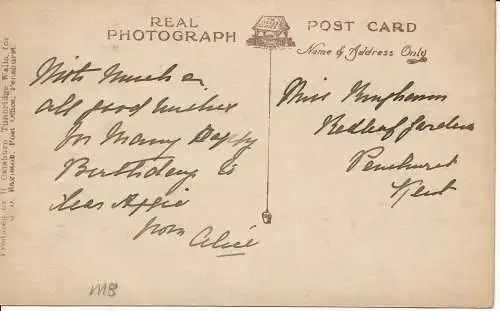 REAL PHOTOGRAPH
POST CARD
Name & Address Only
With much
all good wishes
for Many Happy
Birthdays to
dear Aggie
from Alice
Miss
Redleaf Gardens
Penshurst
Kent
MB
Tunbridge Wells, for
Post Office, Penshurst.